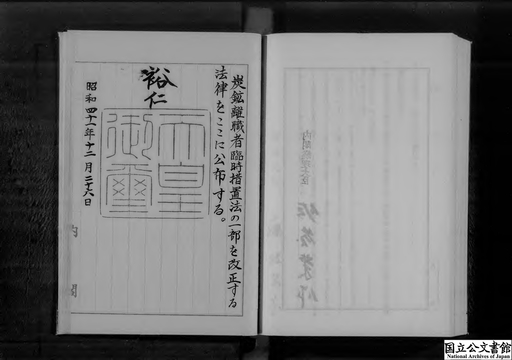 炭鉱離職者臨時措置法の一部を改正する
法律をここに公布する。
裕仁
天皇
御璽
昭和四十一年十二月二十六日
国立公文書館
National Archives of Japan